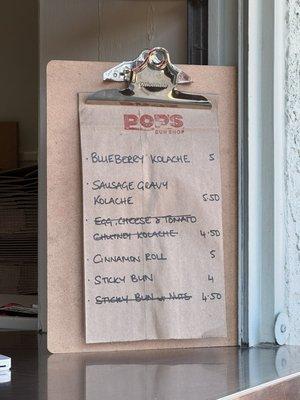 POP'S
BUN SHOP
· BLUEBERRY KOLACHE 5
· SAUSAGE GRAVY
KOLACHE 5.50
· EGG, CHEESE & TOMATO
CHUTNEY KOLACHE 4.50
· CINNAMON ROLL 5
· STICKY BUN 4
· STICKY BUN w NUTS 4.50